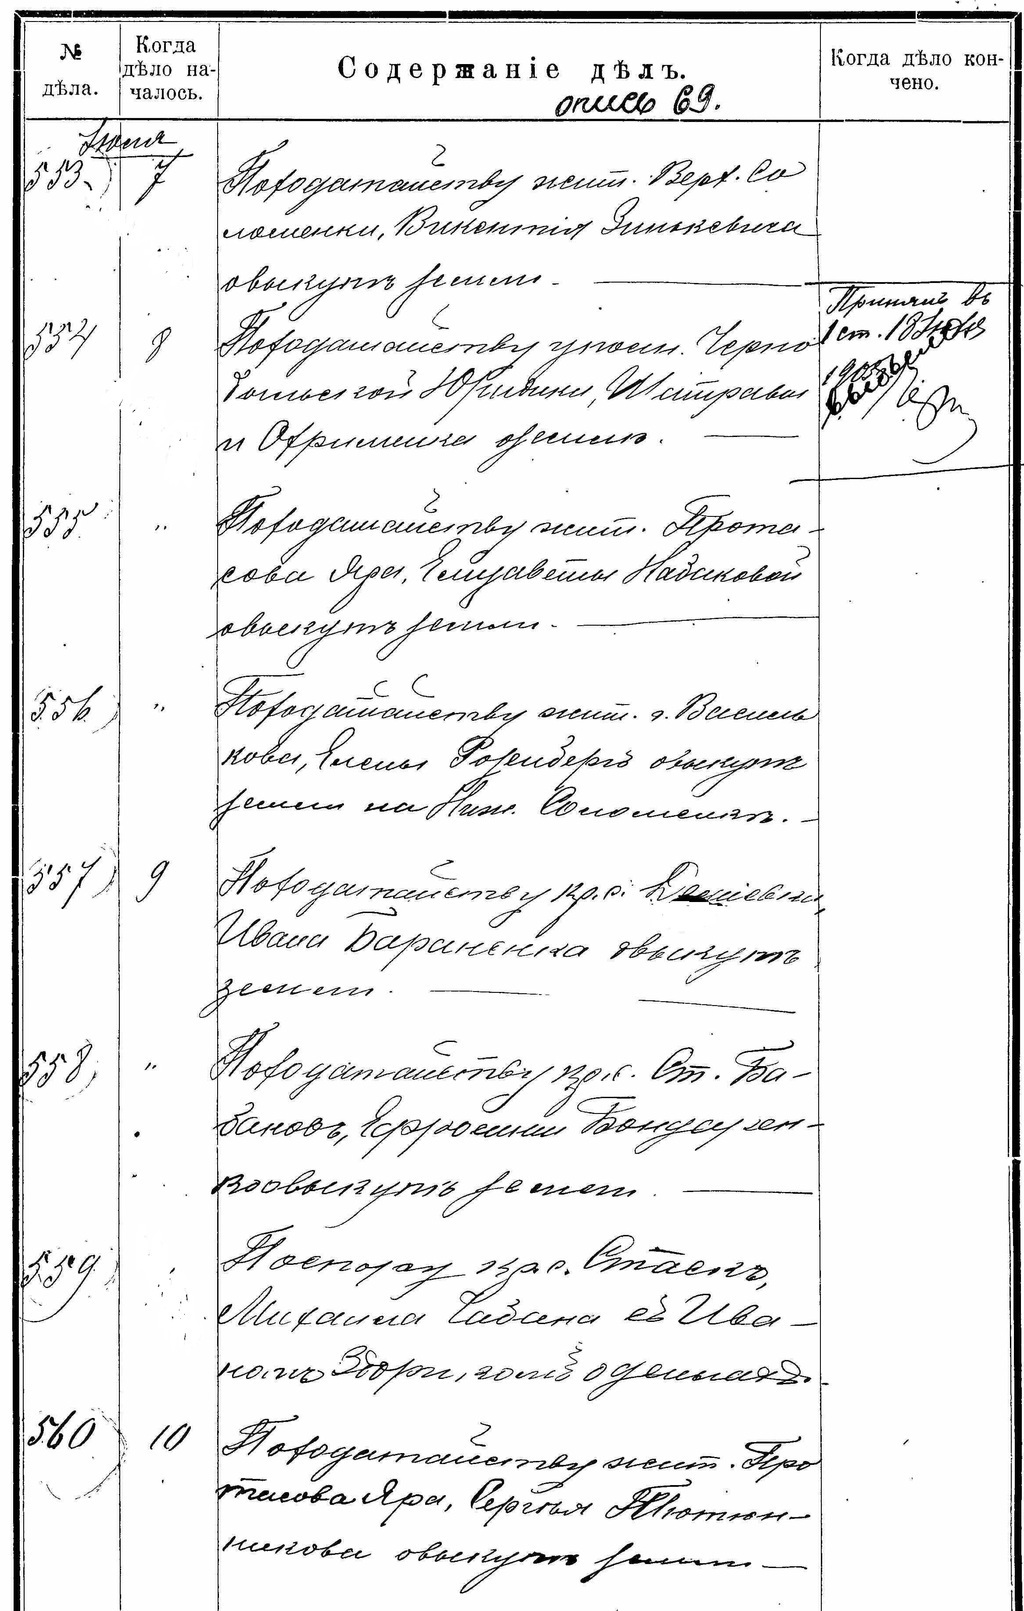 № дѣла.
Когда дѣло на-
чалось.
Содержаніе дѣлъ.
Когда дѣло кон-
чено.
опись 69.
Іюня
553 7 По ходатайству жит. Верх. Со
ломенки, Викентія Зинькевича
о выкупѣ земли.
554 8 По ходатайству упол. Черно
больской Юридики, Шитравы
и Охрименка о земли.
Принят въ
1 ст. 18 Іюля
1905
555 " По ходатайству жит. Прота-
сова Яра, Елизаветы Набоковой
о выкупѣ земли.
556 " По ходатайству жит. г. Василь
кова, Елены Розенбергъ о выкупѣ
земли на Ниж. Соломенкѣ.
557 9 По ходатайству кр. с. Деміевки,
Ивана Бараненка о выкупѣ
земли.
558 " По ходатайству кр. с. Ст. Ба-
бановъ, Ефросиніи Бондарен-
ко о выкупѣ земли.
559 По спору кр. с.
Михаила Чабана съ Ива-
номъ о деньгахъ.
560 10 По ходатайству жит. Про
тасова Яра, Сергѣя Тютюн-
никова о выкупѣ земли